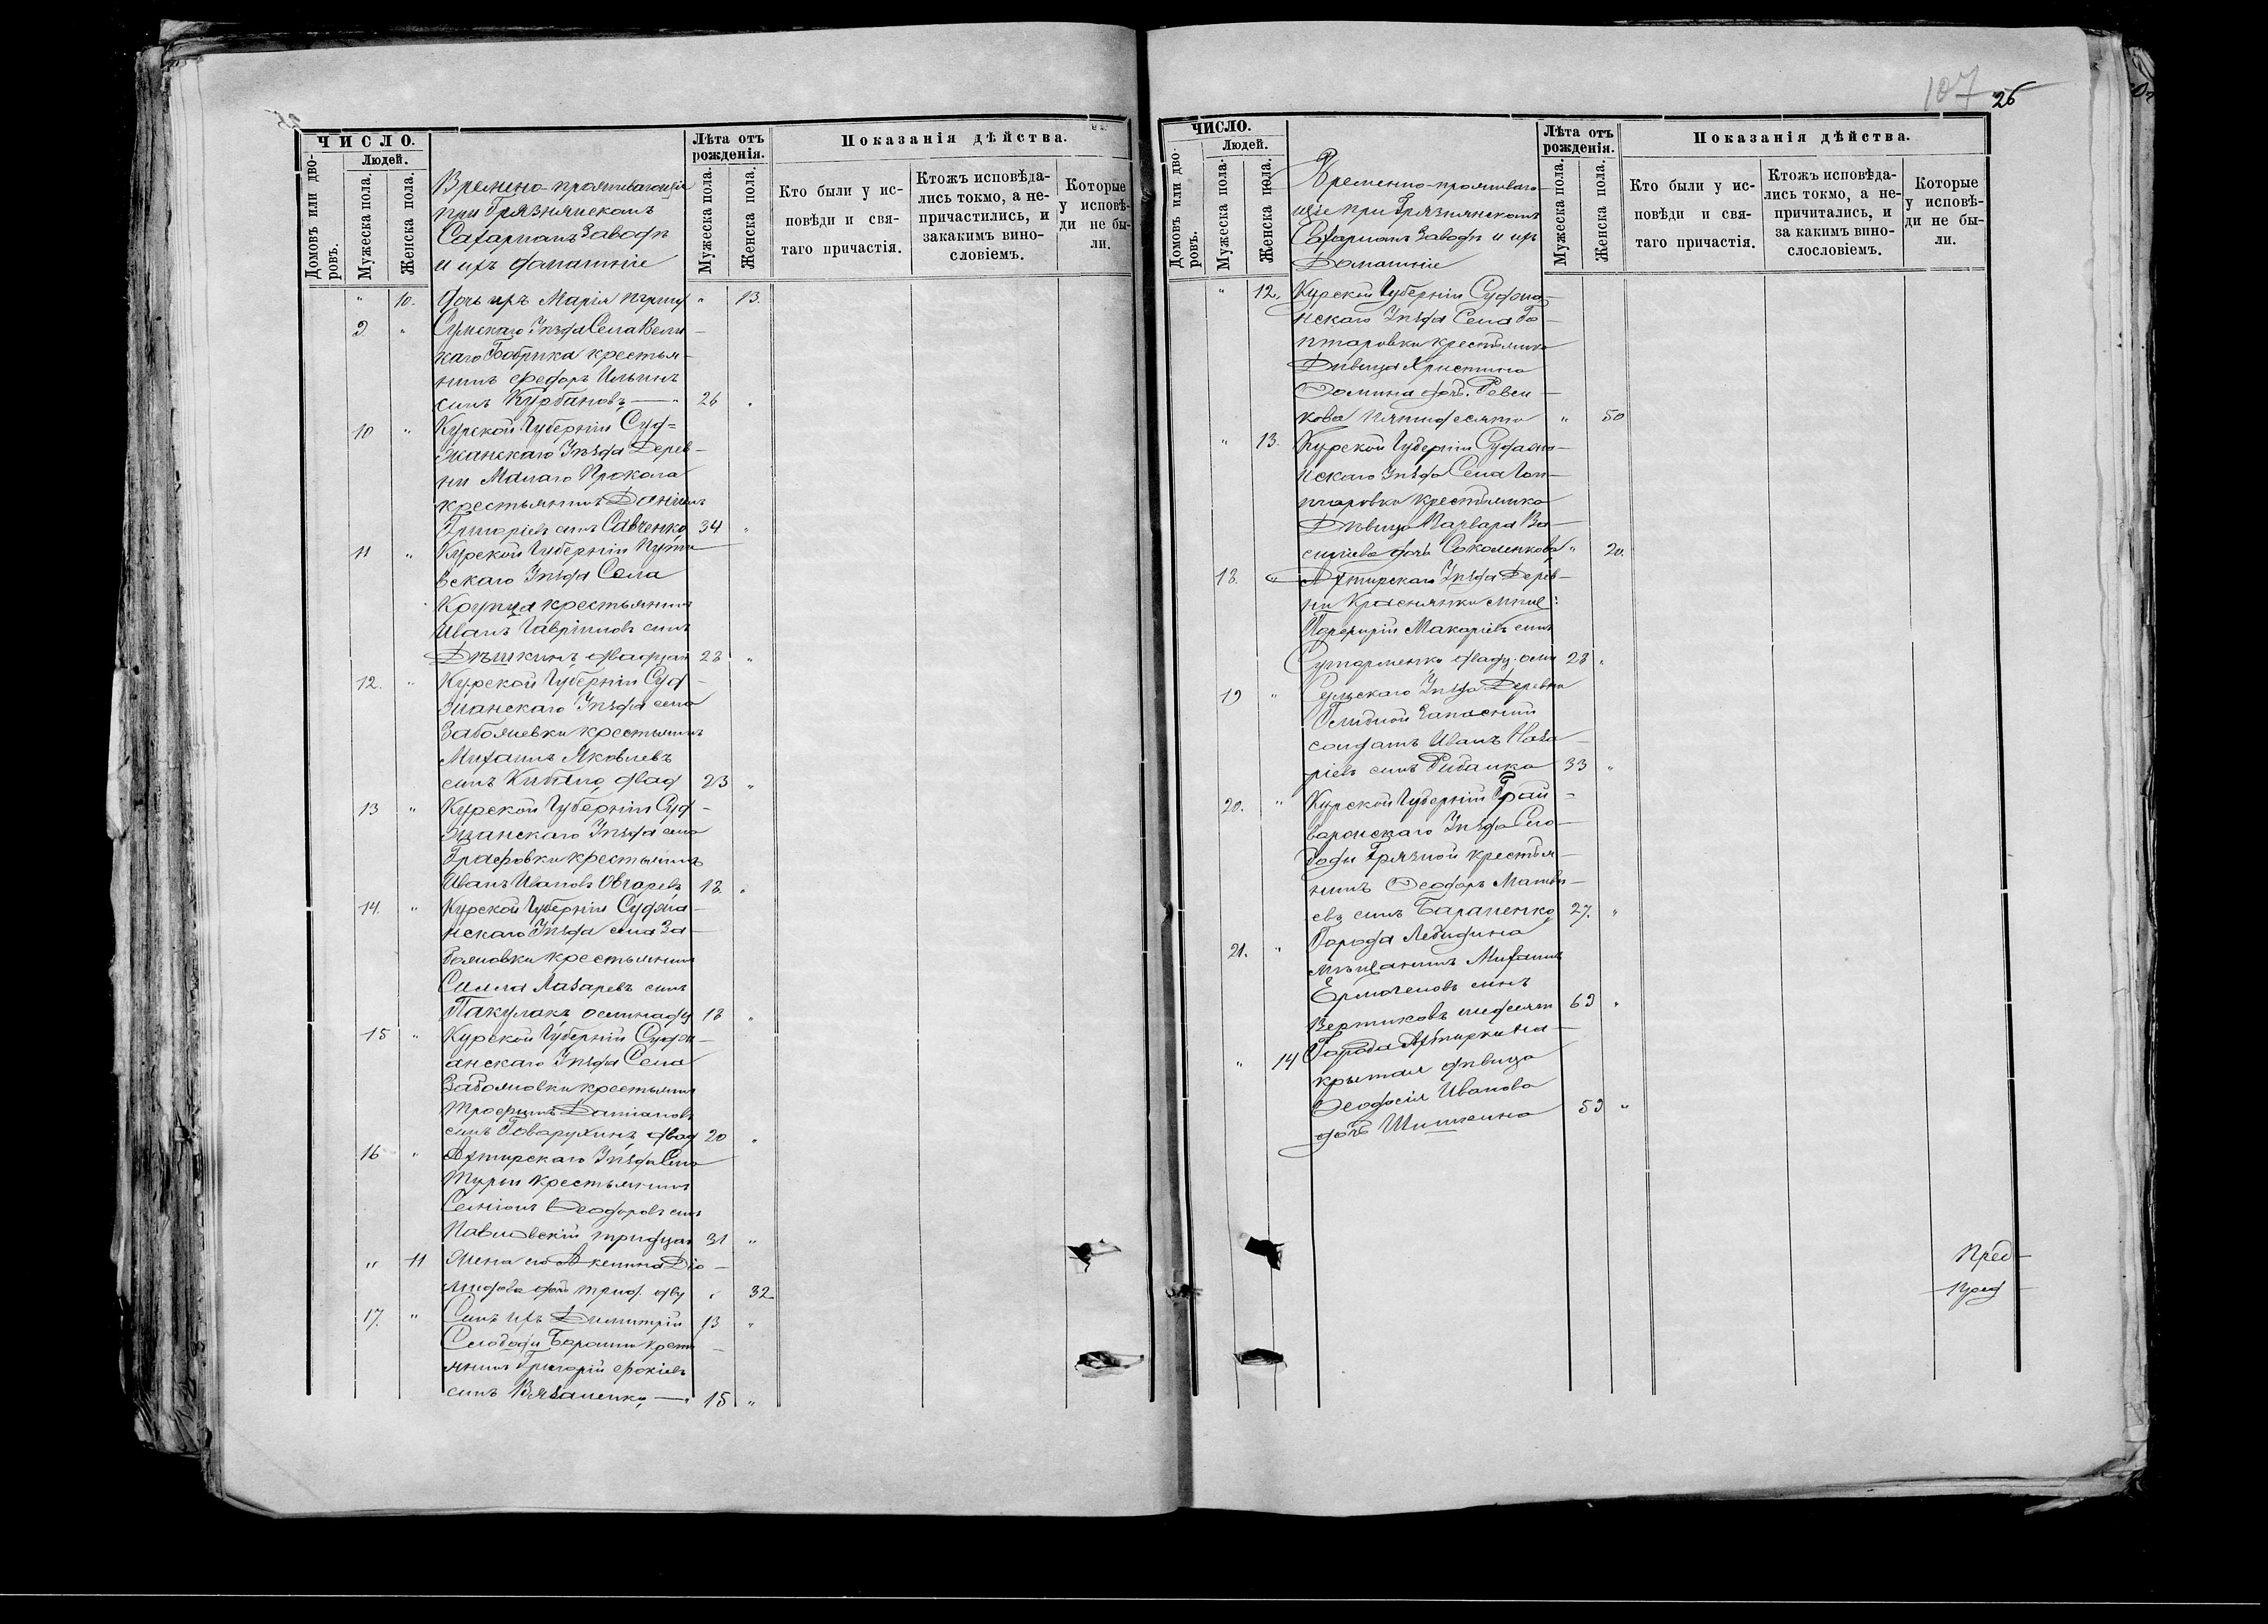 107 26
ЧИСЛО.
Людей.
Домовъ или дворовъ.
Мужеска пола.
Женска пола.
Времено проживающіе
при Грязнянскомъ
Сахарномъ Заводѣ
и ихъ домашніе
Лѣта отъ рожденія.
Мужеска пола.
Женска пола.
Показанія дѣйства.
Кто были у исповѣди и святаго причастія.
Ктожъ исповѣдались токмо, а непричастились, и закакимъ винословіемъ.
Которые у исповѣди не были.
" 10. дочь ихъ Марія " 13.
9 " Сумскаго Уѣзда Села Вели-
каго Бобрика крестья-
нинъ Федоръ Ильинъ
сынъ Курбановъ — 26 "
10 " Курской Губерніи Суд=
жанскаго Уѣзда Дерев-
ни Малаго Прокола
крестьянинъ Даніилъ
Григоріевъ сынъ Савченко 34 "
11 " Курской Губерніи Пути
вскаго Уѣзда Села
Крупца крестьянинъ
Иванъ Гавріиловъ сынъ
двадцат 28 "
12. " Курской Губерніи Суд-
жанскаго Уѣзда села
крестьянинъ
Михаилъ Яковлевъ
сынъ двад 23 "
13 " Курской Губерніи Суд-
жанскаго Уѣзда села
Графовки крестьянинъ
Иванъ Ивановъ Овчаревъ 18. "
14. " Курской Губерніи Суджа-
нскаго Уѣзда села За-
крестьянинъ
Лазаревъ сынъ
Пакулакъ осьмнадц 18 "
15 " Курской Губерніи Судж-
анскаго Уѣзда Села
крестьянинъ
Трофимъ Даміановъ
сынъ Говарухинъ двад 20 "
16 " Ахтирскаго Уѣзда Села
Туріи крестьянинъ
Семіонъ Феодоровъ сынъ
Павловскій тридцат 31 "
" 11 Жена его Акелина Діо-
мидова дочь трид. дву " 32
17. " Сынъ ихъ Димитрій 13 "
Слободы Боромли крест-
янинъ Григорій Фокіевъ
сынъ Вязаненко — 15 "
ЧИСЛО.
Людей.
Домовъ или дворовъ.
Мужеска пола.
Женска пола.
Временно-проживаю-
щіе при Грязнянскомъ
Сахарномъ Заводѣ и ихъ
Домашніе
Лѣта отъ рожденія.
Мужеска пола.
Женска пола.
Показанія дѣйства.
Кто были у исповѣди и святаго причастія.
Ктожъ исповѣдались токмо, а непричитались, и за какимъ винослословіемъ.
Которые у исповѣди не были.
" 12. Курской Губерніи Суджа-
нскаго Уѣзда Села Го-
птаровки крестьянка
Дѣвица Христина
Фомина дочь. Ревен-
кова пятидесяти " 50
" 13. Курской Губерніи Суджа-
нскаго Уѣзда Села Гоп-
таровки крестьянка
Дѣвица Варвара Ва-
силіева дочь Соколенкова " 20.
18. " Ахтирскаго Уѣзда Дерев-
ни Краснянки
Порфирій Макаріевъ сынъ
двадц. осми 28 "
19 " Сумскаго Уѣзда Деревни
Запасный
солдатъ Иванъ Наза-
ріевъ сынъ Рибалка 33 "
20. " Курской Губерніи Грай-
воронскаго Уѣзда Сло-
боды Грязной крестья-
нинъ Феодоръ Матвѣ-
евъ сынъ Бараненко 27. "
21. " Города Лебидина
мѣщанинъ Михаилъ
Ермогеновъ сынъ
Вертиковъ шедесят 69 "
" 14 Города Ахтирки
дѣвица
Феодосія Иванова
дочь Шишкина 59 "
Пред-
Пред